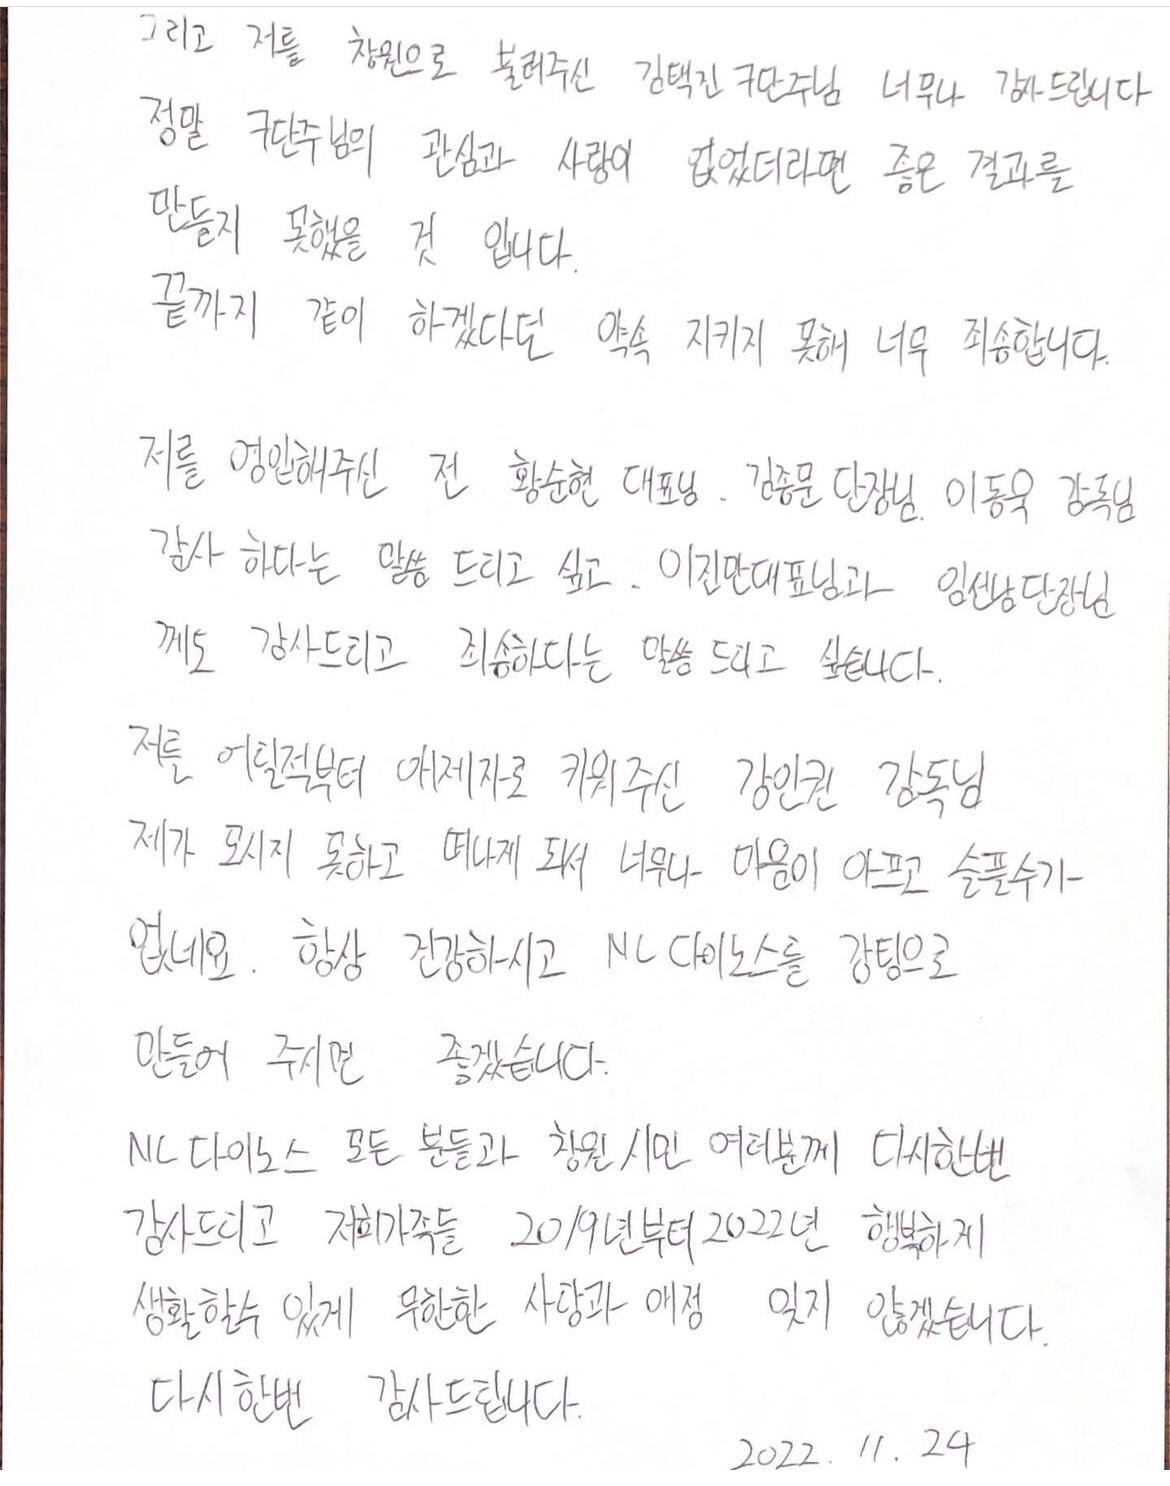 그리고 저를 창원으로 불러주신 김택진 구단주님 너무나 감사드립니다
정말 구단주님의 관심과 사랑이 없었더라면 좋은 결과를
만들지 못했을 것 입니다.
끝까지 같이 하겠다던 약속 지키지 못해 너무 죄송합니다.
저를 영입해주신 전 황순현 대표님. 김종문 단장님. 이동욱 감독님
감사 하다는 말씀 드리고 싶고. 이진만대표님과 임선남단장님
께도 감사드리고 죄송하다는 말씀 드리고 싶습니다.
저를 어릴적부터 애제자로 키워주신 강인권 감독님
제가 모시지 못하고 떠나게 되서 너무나 마음이 아프고 슬플수가
없네요. 항상 건강하시고 NC 다이노스를 강팀으로
만들어 주시면 좋겠습니다.
NC 다이노스 모든 분들과 창원시민 여러분께 다시한번
감사드리고 저희가족들 2019년부터 2022년 행복하게
생활할수 있게 무한한 사랑과 애정 잊지 않겠습니다.
다시한번 감사드립니다.
2022. 11. 24